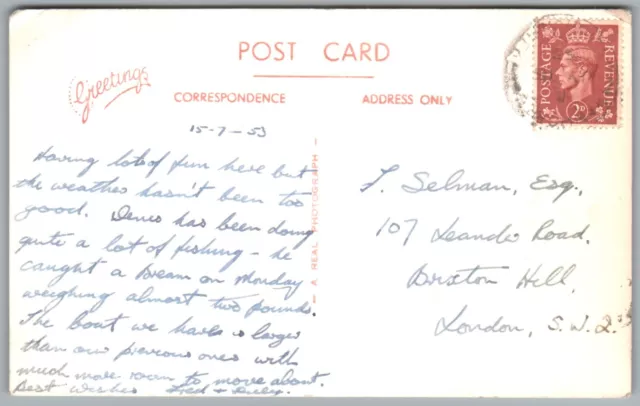 POST CARD
Greetings
CORRESPONDENCE
ADDRESS ONLY
15-7-53
Having lots of fun here but
the weather hasn't been too
good. Denis has been doing
quite a lot of fishing - he
caught a Bream on Monday
weighing almost two pounds.
The boat we have is larger
than our previous ones with
much more room to move about.
Best wishes Fred +
A REAL PHOTOGRAPH
POSTAGE
REVENUE
2D
Selman, Esq.,
107 Leander Road,
Brixton Hill,
London, S.W.2.